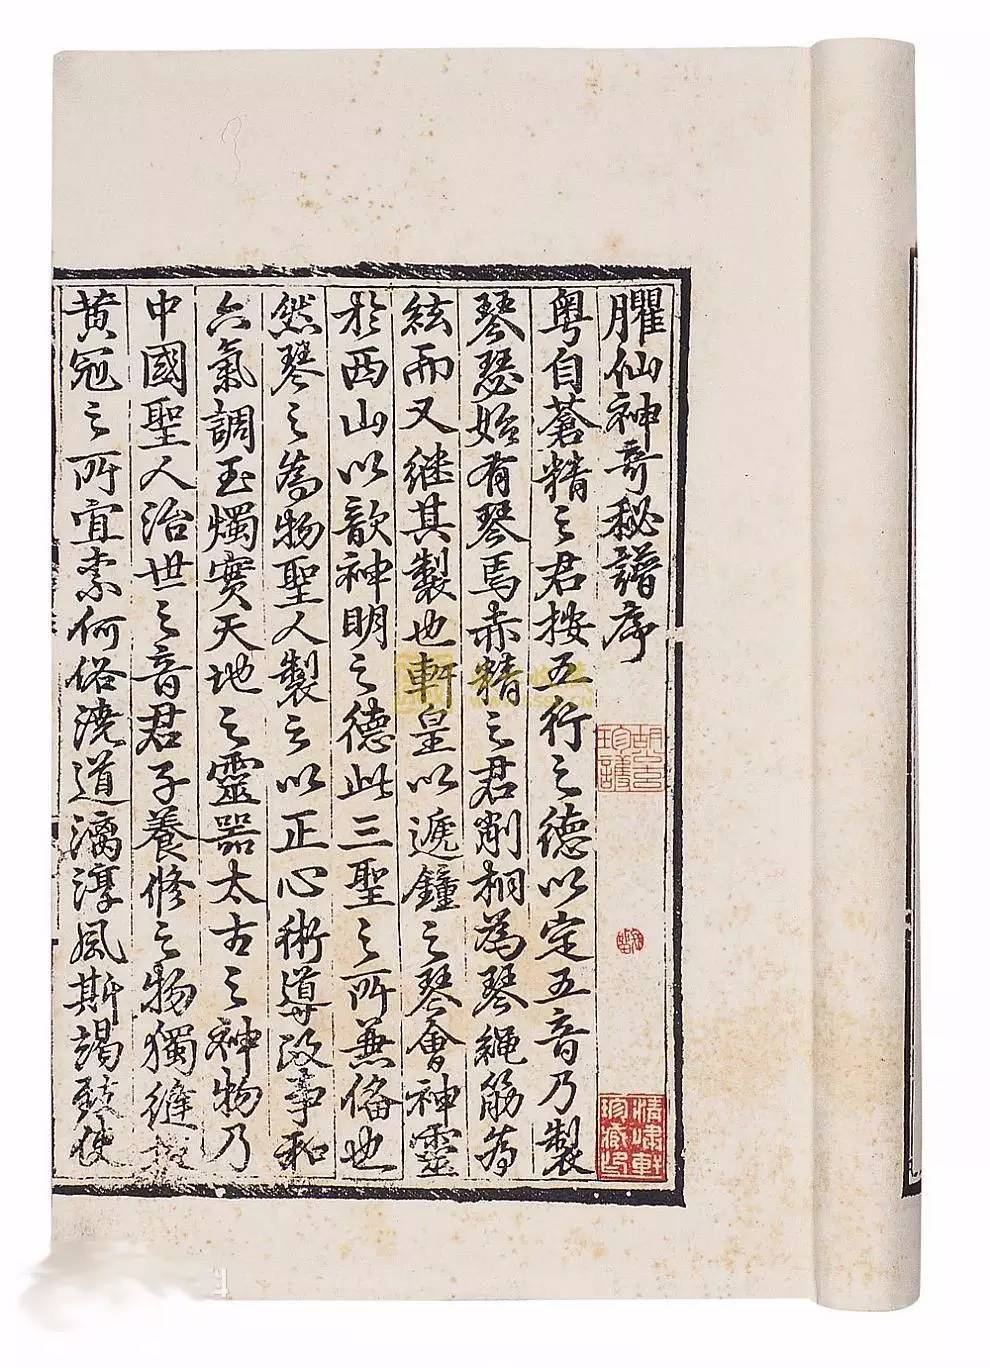 臞仙神竒秘譜序
粤自蒼精之君按五行之德以定五音乃製
琴瑟始有琴焉赤精之君削桐為琴繩筋為
絃而又继其製也軒皇以遞鐘之琴會神靈
於西山以歆神明之德此三聖之所兼俻也
然琴之為物聖人製之以正心術導政事和
六氣調玉燭實天地之靈噐太古之神物乃
中國聖人治世之音君子養修之物獨縫掖
黄冠之所宜柰何俗澆道漓淳風斯竭致使
清嘯軒珍藏印